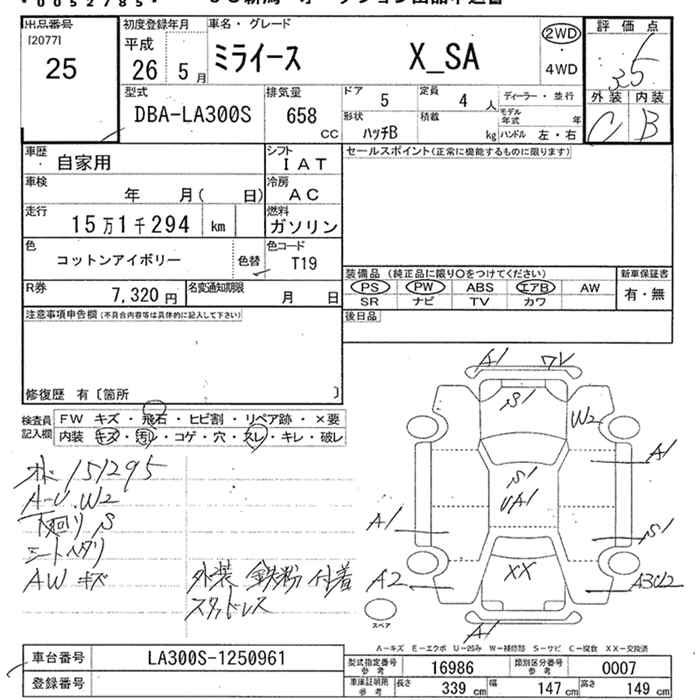 出品番号
[2077]
25
初度登録年月
平成
26 5月
車名・グレード
ミライース X_SA
2WD
・
4WD
評価点
3.5
外装 内装
C B
型式
DBA-LA300S
排気量
658 CC
ドア 5
定員 4 人
ディーラー・並行
形状
ハッチB
積載 kg
モデル年式 年
ハンドル 左・右
車歴
自家用
シフト
IAT
セールスポイント(正常に機能するものに限ります)
車検
年 月( 日)
冷房
AC
走行
15万1千294 km
燃料
ガソリン
色
コットンアイボリー
色替
色コード
T19
装備品 (純正品に限り○をつけてください)
新車保証書
PS PW ABS エアB AW
SR ナビ TV カワ
有・無
R券
7,320 円
名変通知期限
月 日
後日品
注意事項申告欄(不具合内容等は具体的に記入して下さい)
修復歴 有〔箇所 〕
検査員記入欄
FW キズ・飛石・ヒビ割・リペア跡・×要
内装 キズ・汚レ・コゲ・穴・スレ・キレ・破レ
151295
A-U.W2
下廻りS
シートヘタリ
AW キズ
外装 鉄粉 付着
スタッドレス
A1
S1
W2
A1
S1
UA1
A1
S1
XX
A2
A3U2
A1
スペア
A-キズ E-エクボ U-凹み W-補修跡 S-サビ C-腐食 XX-交換済
車台番号
LA300S-1250961
登録番号
型式指定番号参考
16986
類別区分番号参考
0007
車庫証明用参考
長さ 339 cm
幅 147 cm
高さ 149 cm